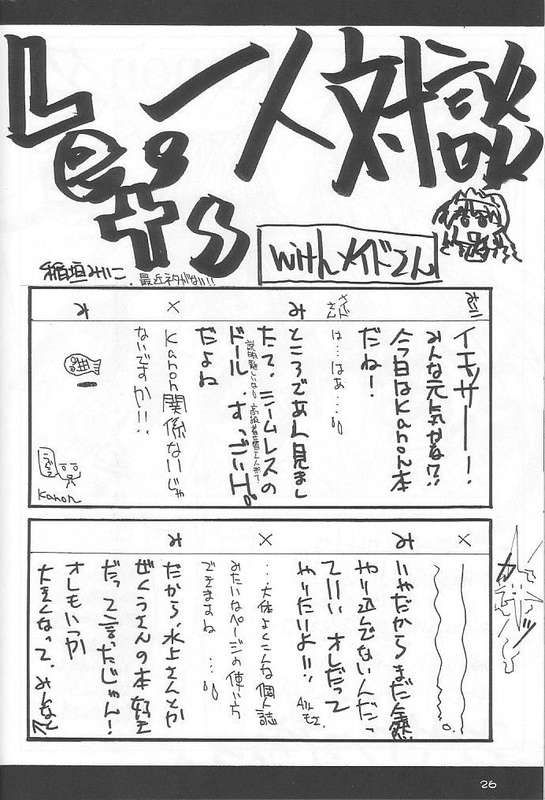 一人対談
withメイドさん
稲垣みいこ
最近ネタがない!!
みいこ
イエッサー!
みんな元気かな??
今日はkanon本
だね!
メイドさん
は…はあ…。
み
ところであれ見まし
た?シームレスの
ドール。すっごいよ。
だよね
×
kanon関係ないじゃ
ないですか!!
み
うぐぅ
kanon
×
み
いやだからまだ全然
やり込んでないんだっ
て!!! オレだって
やりたいよ!!
×
…大体よくこんな個人誌
みたいなページの使い方
できますね…。
み
だから、水上さんとか
ぜくうさんの本好き
だって言ったじゃん!
オレもいつか
大きくなって、みんなと
26